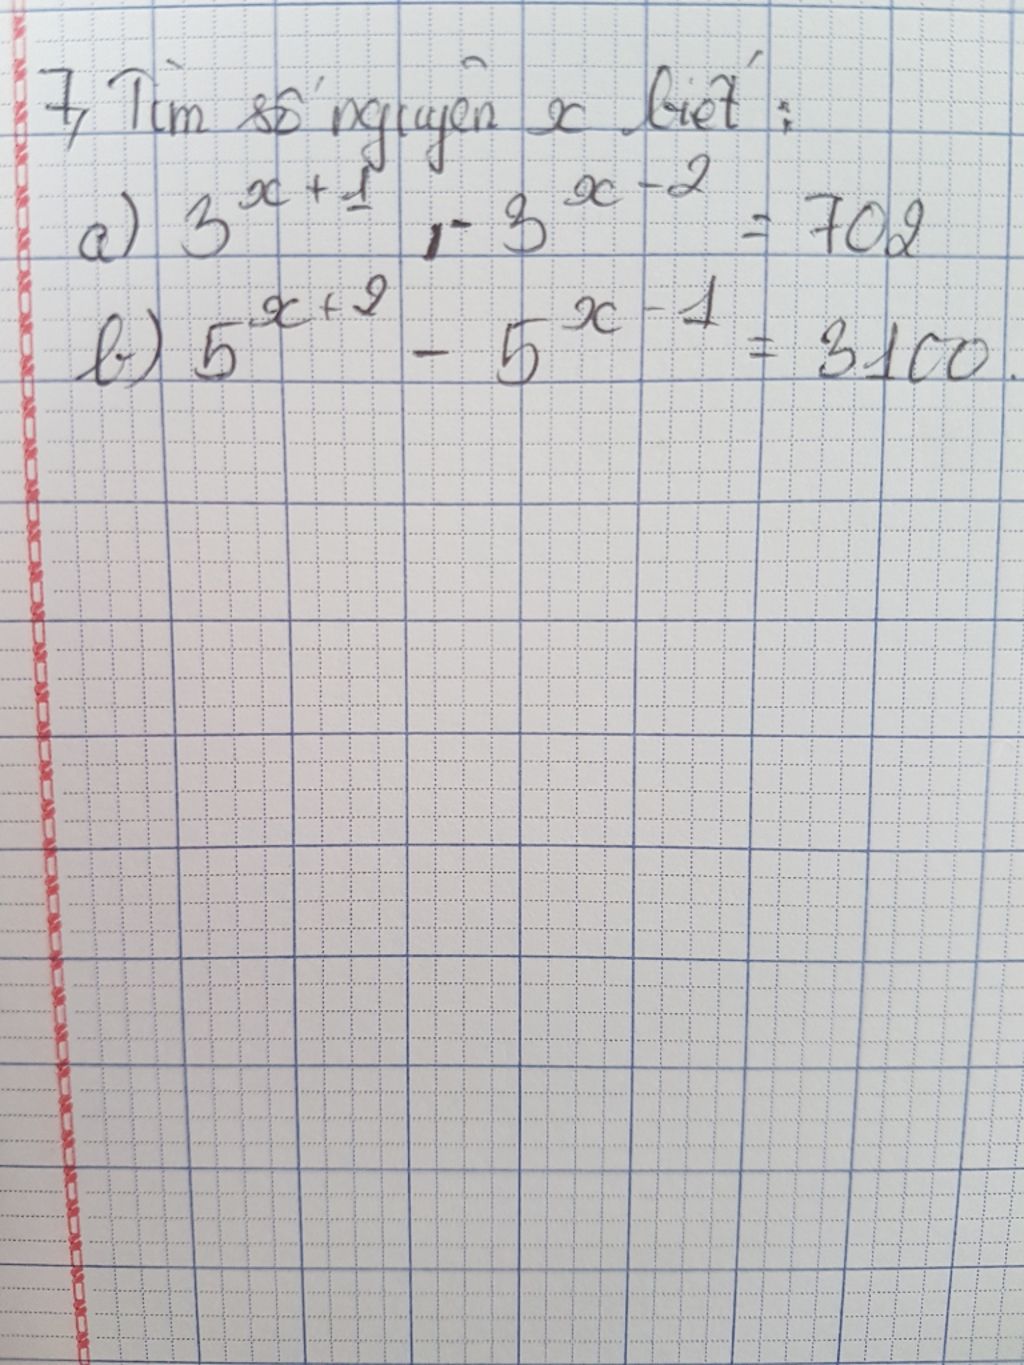 7, Tìm số nguyên x biết :
a) 3^{x+1} - 3^{x-2} = 702
b) 5^{x+2} - 5^{x-1} = 3100.